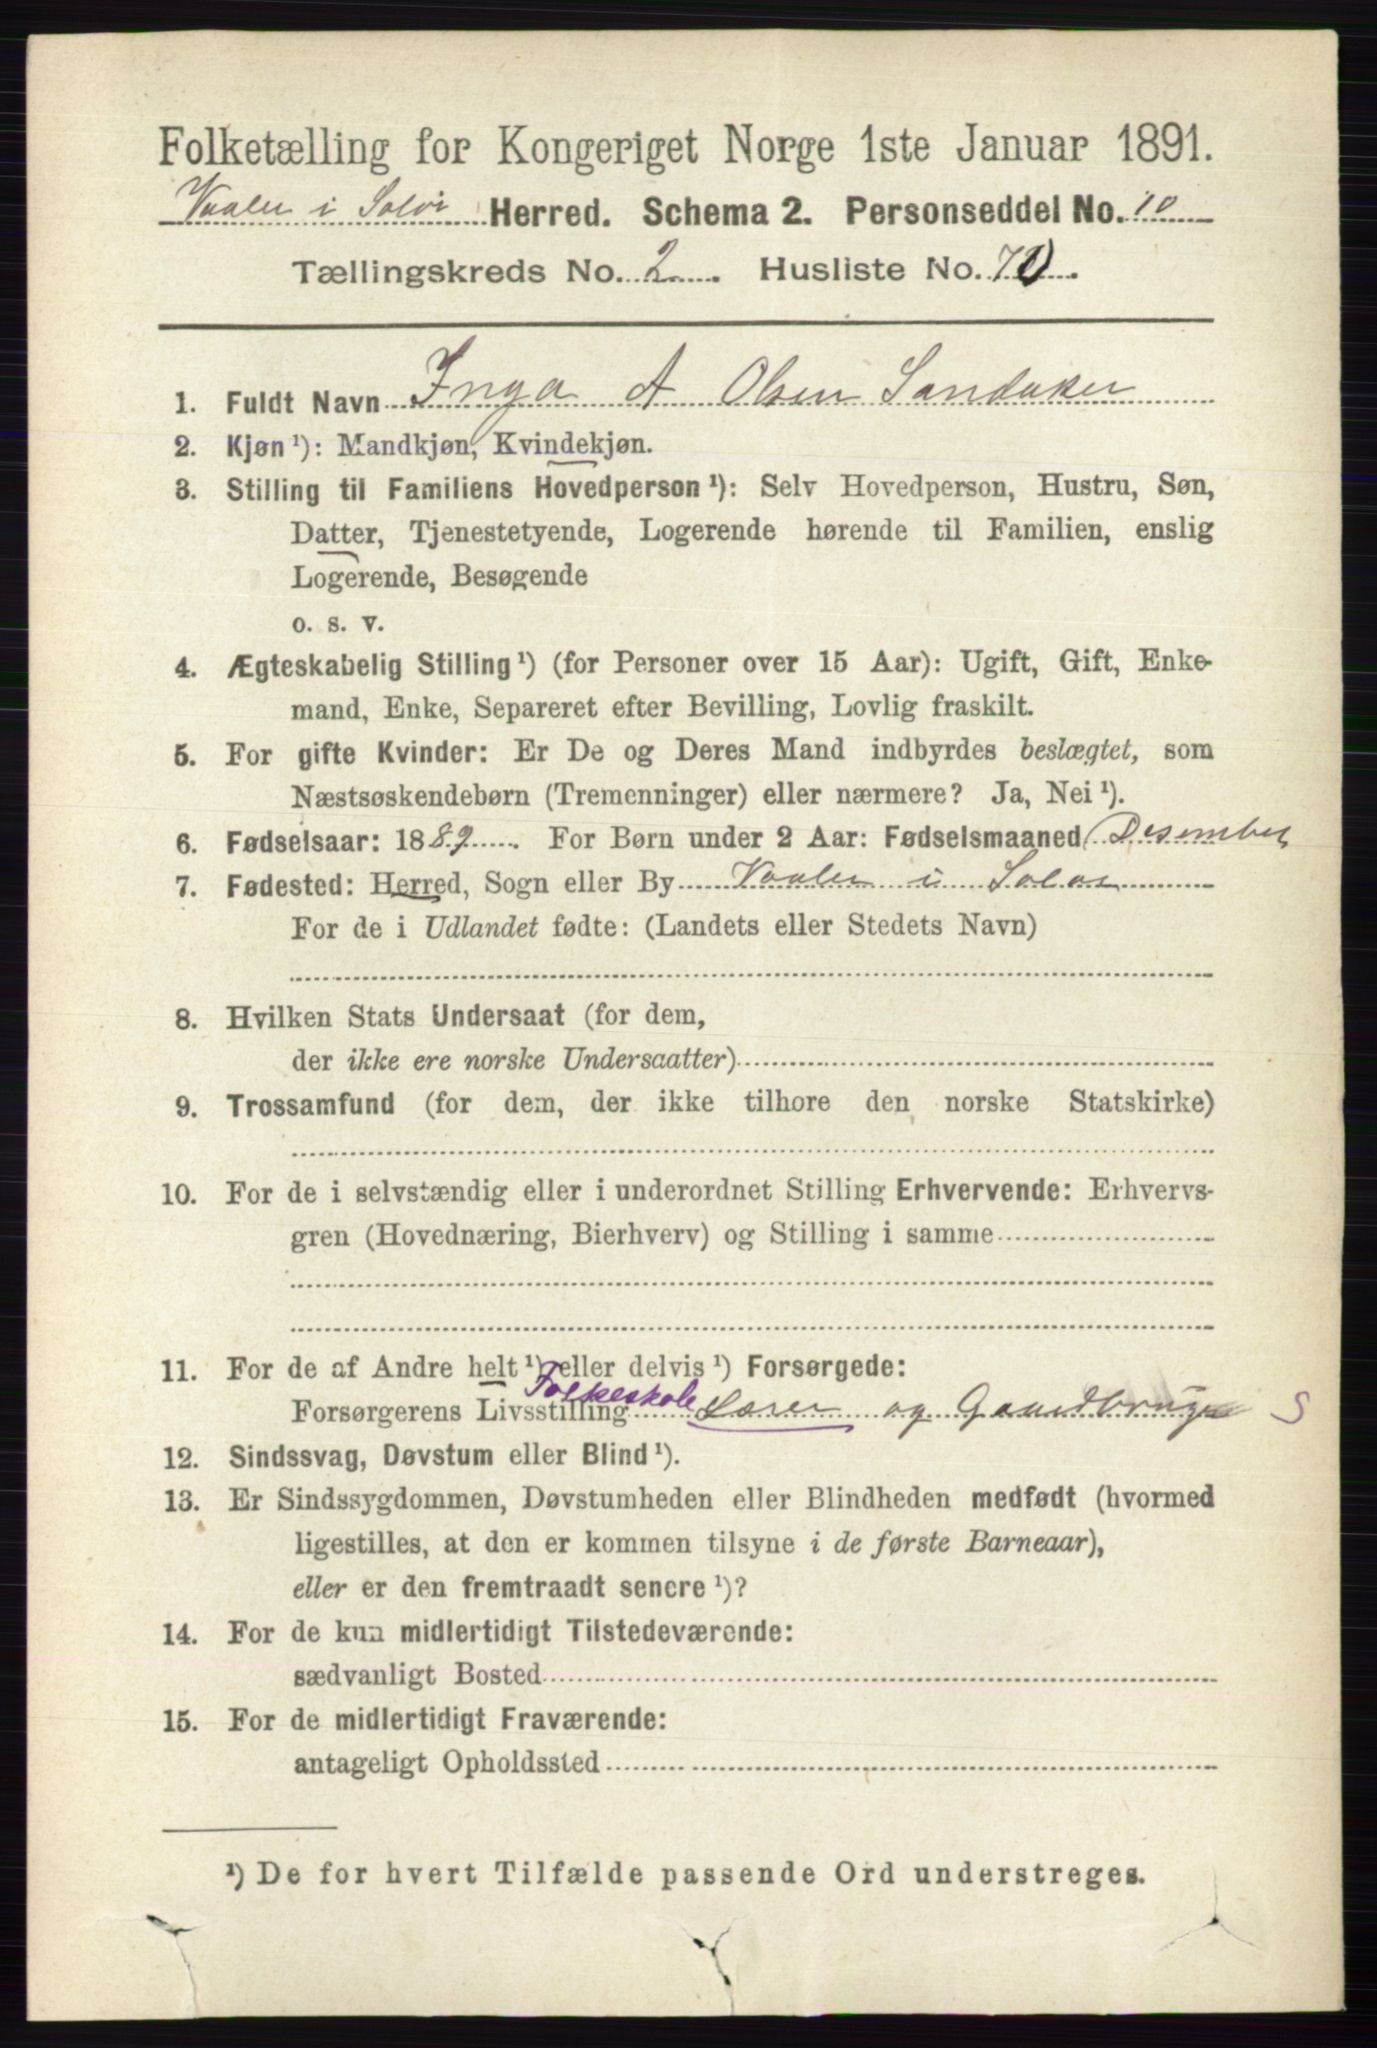 Folketælling for Kongeriget Norge 1ste Januar 1891.
Vaaler i Solør Herred. Schema 2. Personseddel No. 10
Tællingskreds No. 2. Husliste No. 70.
1. Fuldt Navn Inga A Olsen Sandaker
2. Kjøn ¹): Mandkjøn, Kvindekjøn.
3. Stilling til Familiens Hovedperson ¹): Selv Hovedperson, Hustru, Søn,
Datter, Tjenestetyende, Logerende hørende til Familien, enslig
Logerende, Besøgende
o. s. v.
4. Ægteskabelig Stilling ¹) (for Personer over 15 Aar): Ugift, Gift, Enke-
mand, Enke, Separeret efter Bevilling, Lovlig fraskilt.
5. For gifte Kvinder: Er De og Deres Mand indbyrdes beslægtet, som
Næstsøskendebørn (Tremenninger) eller nærmere? Ja, Nei ¹).
6. Fødselsaar: 1889. For Børn under 2 Aar: Fødselsmaaned Desember
7. Fødested: Herred, Sogn eller By Vaaler i Solør
For de i Udlandet fødte: (Landets eller Stedets Navn)
8. Hvilken Stats Undersaat (for dem,
der ikke ere norske Undersaatter)
9. Trossamfund (for dem, der ikke tilhore den norske Statskirke)
10. For de i selvstændig eller i underordnet Stilling Erhvervende: Erhvervs-
gren (Hovednæring, Bierhverv) og Stilling i samme
11. For de af Andre helt ¹) eller delvis ¹) Forsørgede:
Forsørgerens Livsstilling Folkeskole Lærer og Gaardbruger S
12. Sindssvag, Døvstum eller Blind ¹).
13. Er Sindssygdommen, Døvstumheden eller Blindheden medfødt (hvormed
ligestilles, at den er kommen tilsyne i de første Barneaar),
eller er den fremtraadt senere ¹)?
14. For de kun midlertidigt Tilstedeværende:
sædvanligt Bosted
15. For de midlertidigt Fraværende:
antageligt Opholdssted
¹) De for hvert Tilfælde passende Ord understreges.